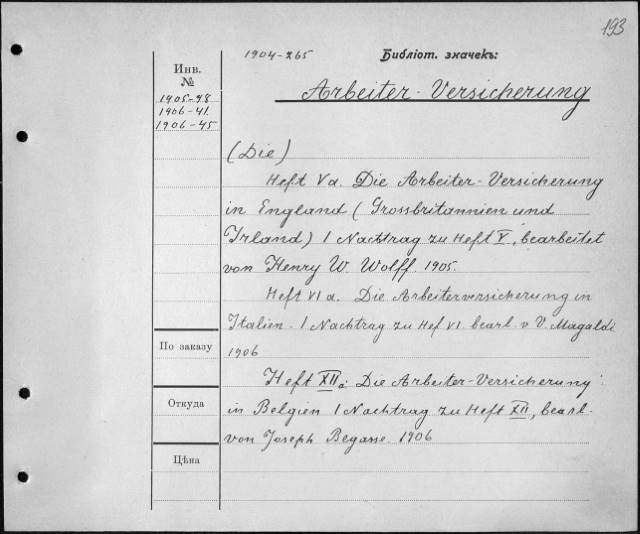 193
1904-265 Библіот. значекъ:
Инв.
№
Arbeiter-Versicherung
1905-98
1906-41.
1906-45
(Die)
Heft Va. Die Arbeiter-Versicherung
in England (Grossbritannien und
Irland) 1 Nachtrag zu Heft V, bearbeitet
von Henry W. Wolff. 1905.
Heft VI a. Die Arbeiterversicherung in
Italien. 1 Nachtrag zu Hef VI. bearb. v. V. Magaldi
По заказу
1906
Heft XIIa: Die Arbeiter-Versicherung
Откуда
in Belgien 1 Nachtrag zu Heft XII, bearb.
von Joseph Begasse. 1906
Цѣна